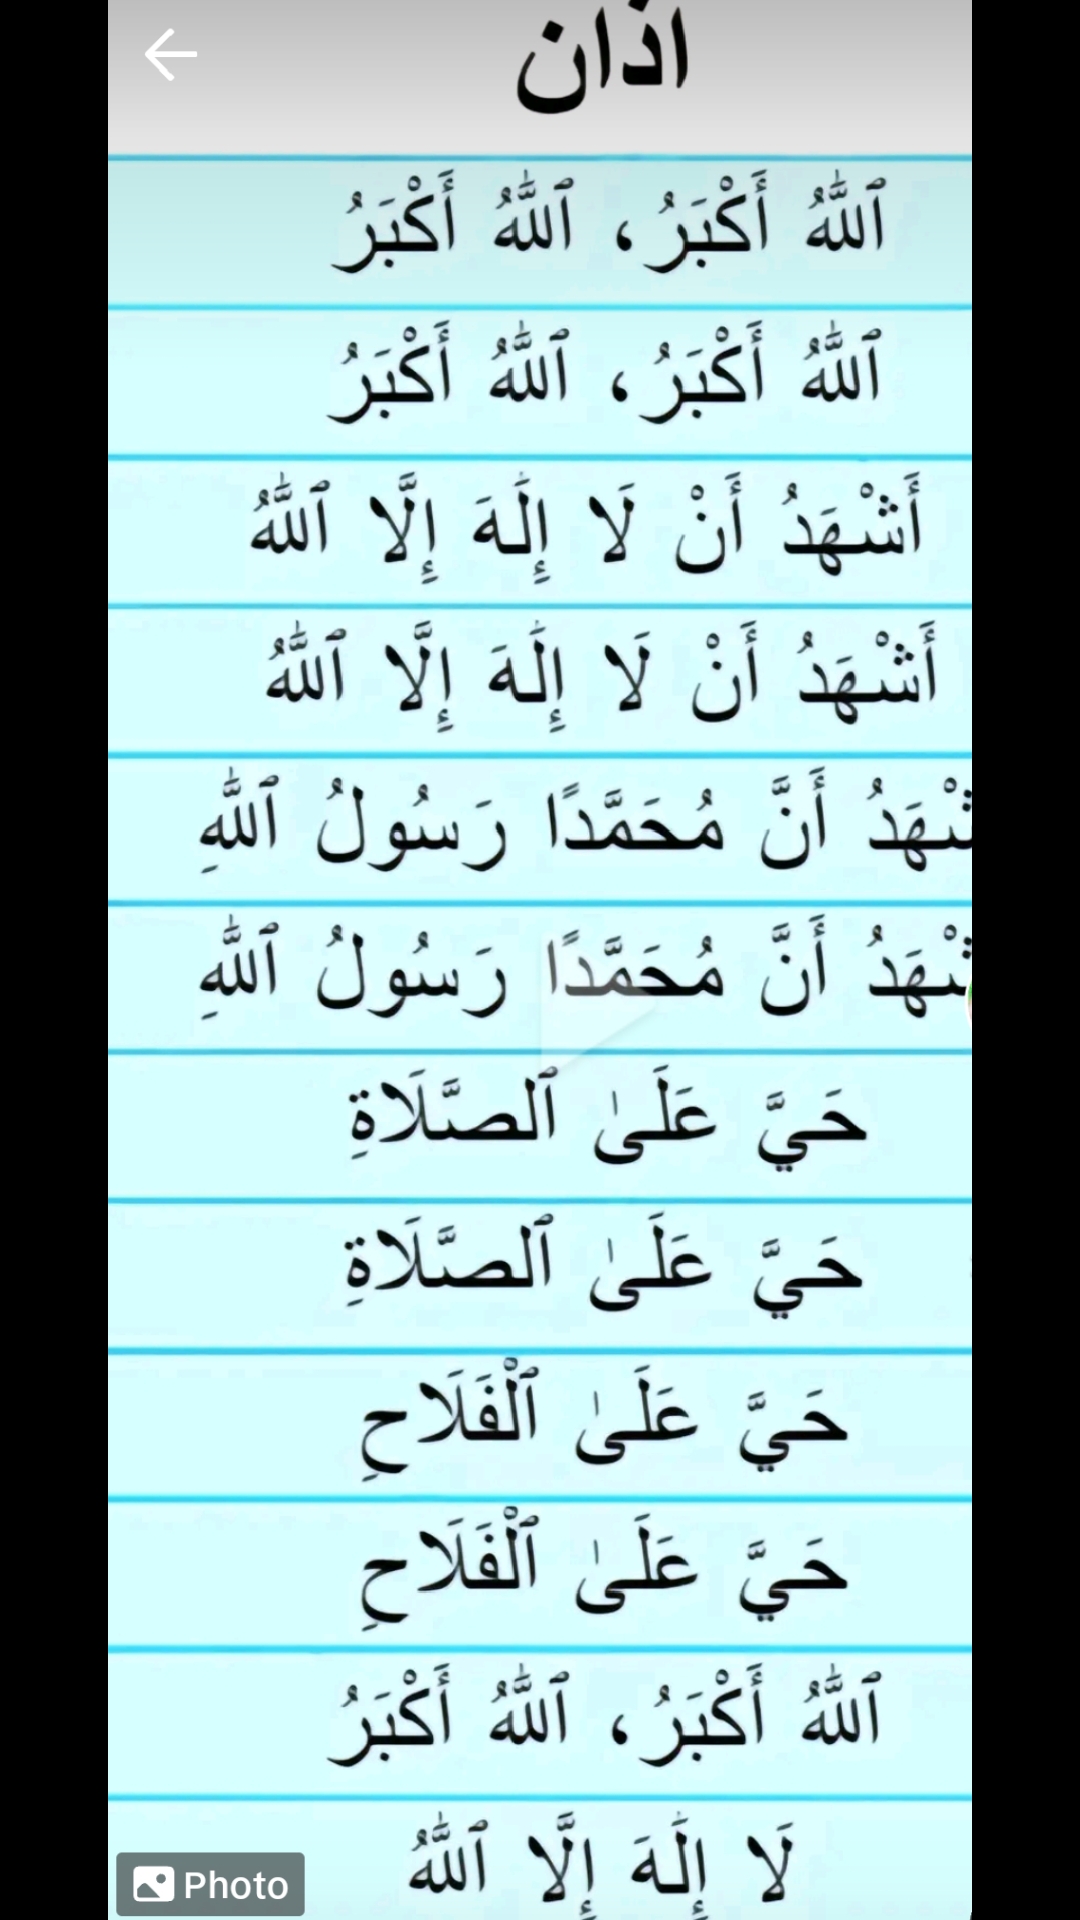 اذان
ٱللَّٰهُ أَكْبَرُ، ٱللَّٰهُ أَكْبَرُ
ٱللَّٰهُ أَكْبَرُ، ٱللَّٰهُ أَكْبَرُ
أَشْهَدُ أَنْ لَا إِلَٰهَ إِلَّا ٱللَّٰهُ
أَشْهَدُ أَنْ لَا إِلَٰهَ إِلَّا ٱللَّٰهُ
أَنَّ مُحَمَّدًا رَسُولُ ٱللَّٰهِ
أَنَّ مُحَمَّدًا رَسُولُ ٱللَّٰهِ
حَيَّ عَلَىٰ ٱلصَّلَاةِ
حَيَّ عَلَىٰ ٱلصَّلَاةِ
حَيَّ عَلَىٰ ٱلْفَلَاحِ
حَيَّ عَلَىٰ ٱلْفَلَاحِ
ٱللَّٰهُ أَكْبَرُ، ٱللَّٰهُ أَكْبَرُ
لَا إِلَٰهَ إِلَّا ٱللَّٰهُ
Photo